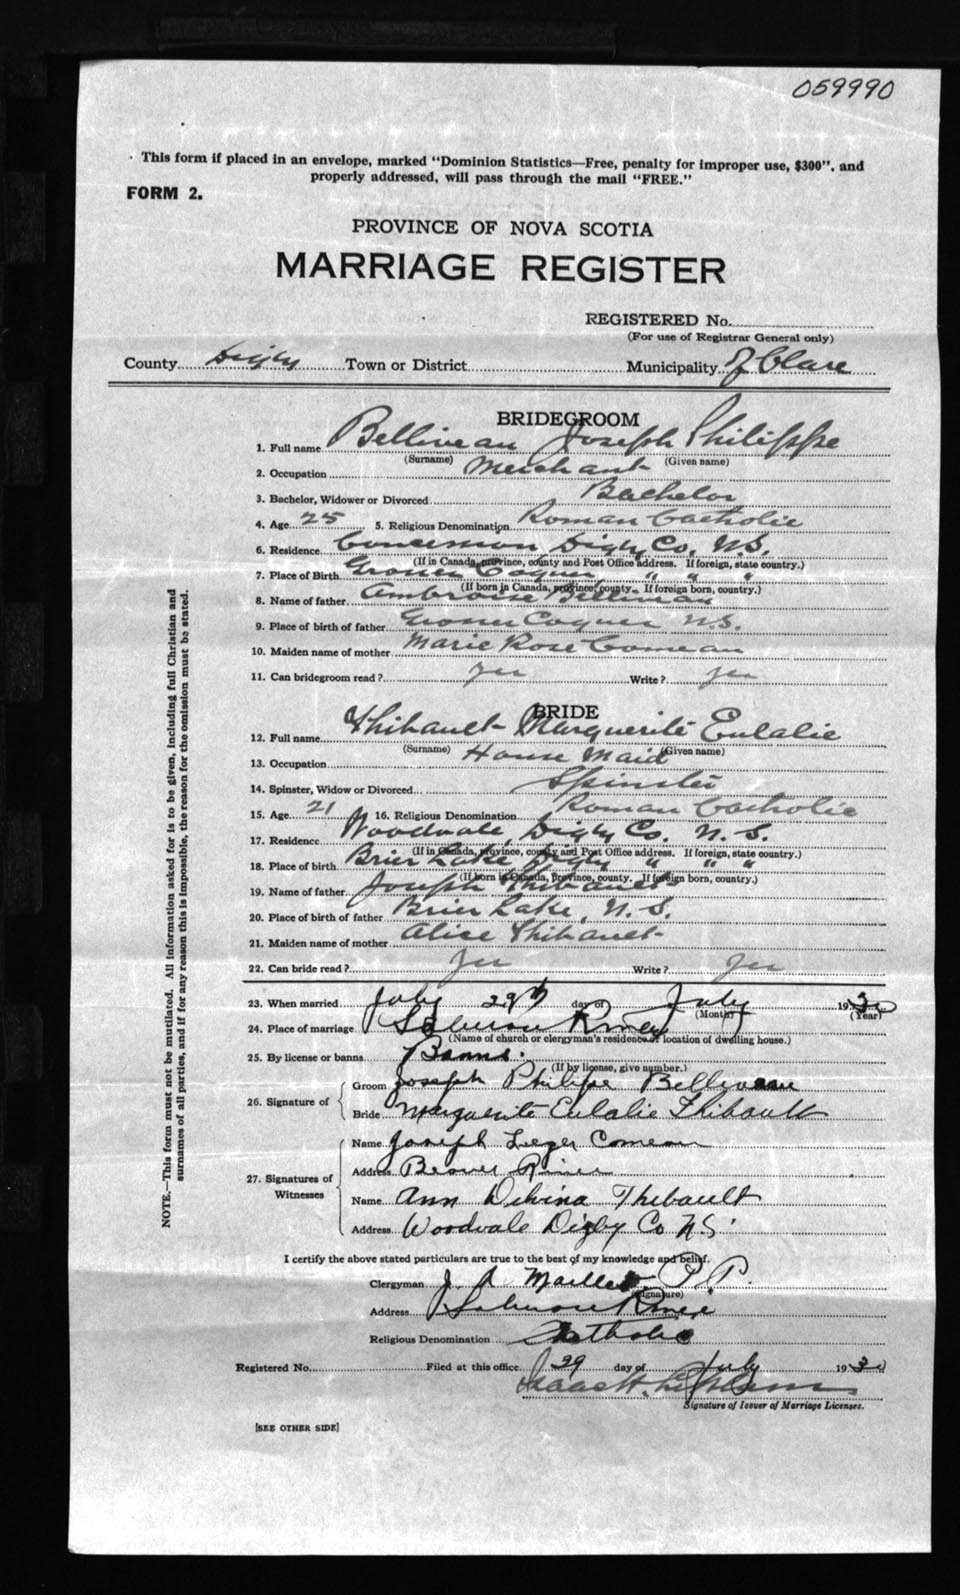 059990
This form if placed in an envelope, marked "Dominion Statistics—Free, penalty for improper use, $300", and
properly addressed, will pass through the mail "FREE."
FORM 2.
PROVINCE OF NOVA SCOTIA
MARRIAGE REGISTER
REGISTERED No.
(For use of Registrar General only)
County Digby Town or District Municipality of Clare
BRIDEGROOM
1. Full name Belliveau Joseph Philippe
(Surname) (Given name)
2. Occupation Merchant
3. Bachelor, Widower or Divorced Bachelor
4. Age 25 5. Religious Denomination Roman Catholic
6. Residence Concession Digby Co, N.S.
(If in Canada, province, county and Post Office address. If foreign, state country.)
7. Place of Birth Grosses Coques " " "
(If born in Canada, province, county. If foreign born, country.)
8. Name of father Ambroise Belliveau
9. Place of birth of father Grosses Coques N.S.
10. Maiden name of mother Marie Rose Comeau
11. Can bridegroom read? Yes Write? Yes
BRIDE
12. Full name Thibault Marguerite Eulalie
(Surname) (Given name)
13. Occupation House Maid
14. Spinster, Widow or Divorced Spinster
15. Age 21 16. Religious Denomination Roman Catholic
17. Residence Woodvale, Digby Co. N.S.
(If in Canada, province, county and Post Office address. If foreign, state country.)
18. Place of birth Brier Lake Digby " " "
(If born in Canada, province, county. If foreign born, country.)
19. Name of father Joseph Thibault
20. Place of birth of father Brier Lake, N.S.
21. Maiden name of mother Alice Thibault
22. Can bride read? Yes Write? Yes
23. When married July 29th day of July 1930
(Month) (Year)
24. Place of marriage Salmon River
(Name of church or clergyman's residence or location of dwelling house.)
25. By license or banns Banns.
(If by license, give number.)
26. Signature of
Groom Joseph Philippe Belliveau
Bride Marguerite Eulalie Thibault
27. Signatures of Witnesses
Name Joseph Leger Comeau
Address Beaver River
Name Ann Delvina Thibault
Address Woodvale Digby Co N.S.
I certify the above stated particulars are true to the best of my knowledge and belief.
Clergyman J A Maillet P.P.
(Signature)
Address Salmon River
Religious Denomination Catholic
Registered No. Filed at this office 29 day of July 1930
Signature of Issuer of Marriage Licenses.
[SEE OTHER SIDE]
NOTE.—This form must not be mutilated. All information asked for is to be given, including full Christian and
surnames of all parties, and if for any reason this is impossible, the reason for the omission must be stated.